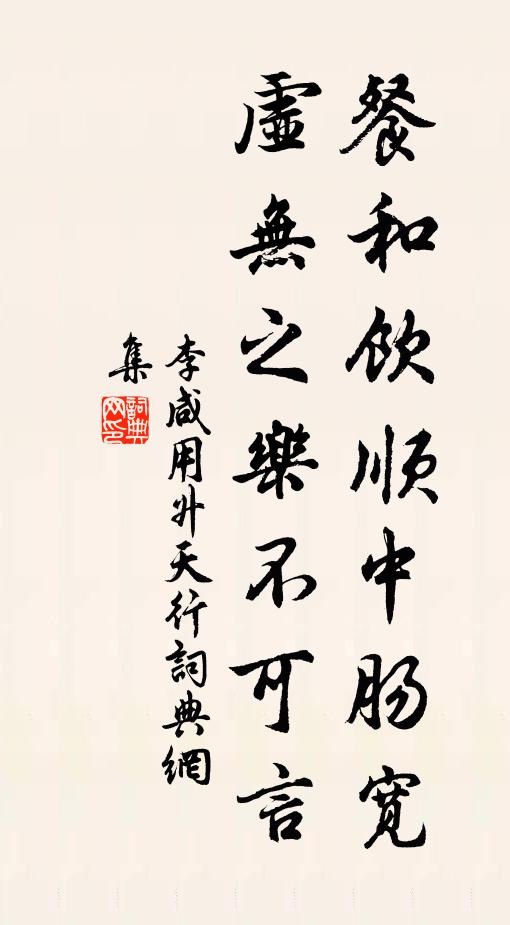 餐和飲順中腸寬
虛無之樂不可言
李咸用升天行詞典網
集
詞典
网印